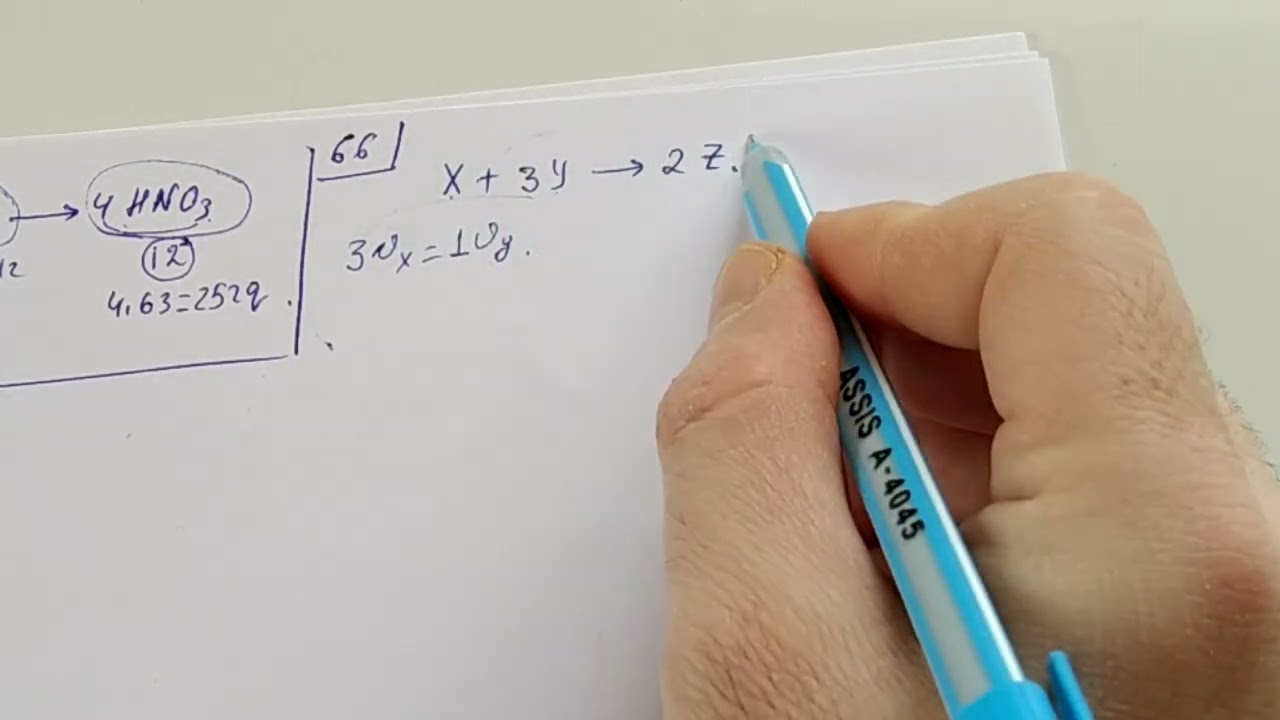 4 HNO₃
12
12
4.63=252q.
66
X + 3Y → 2 Z.
3υₓ=1υy.
ASSIS A-4045